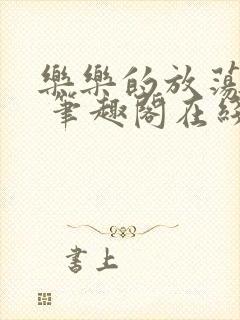 樂樂的放蕩
筆趣閣在綫
書上